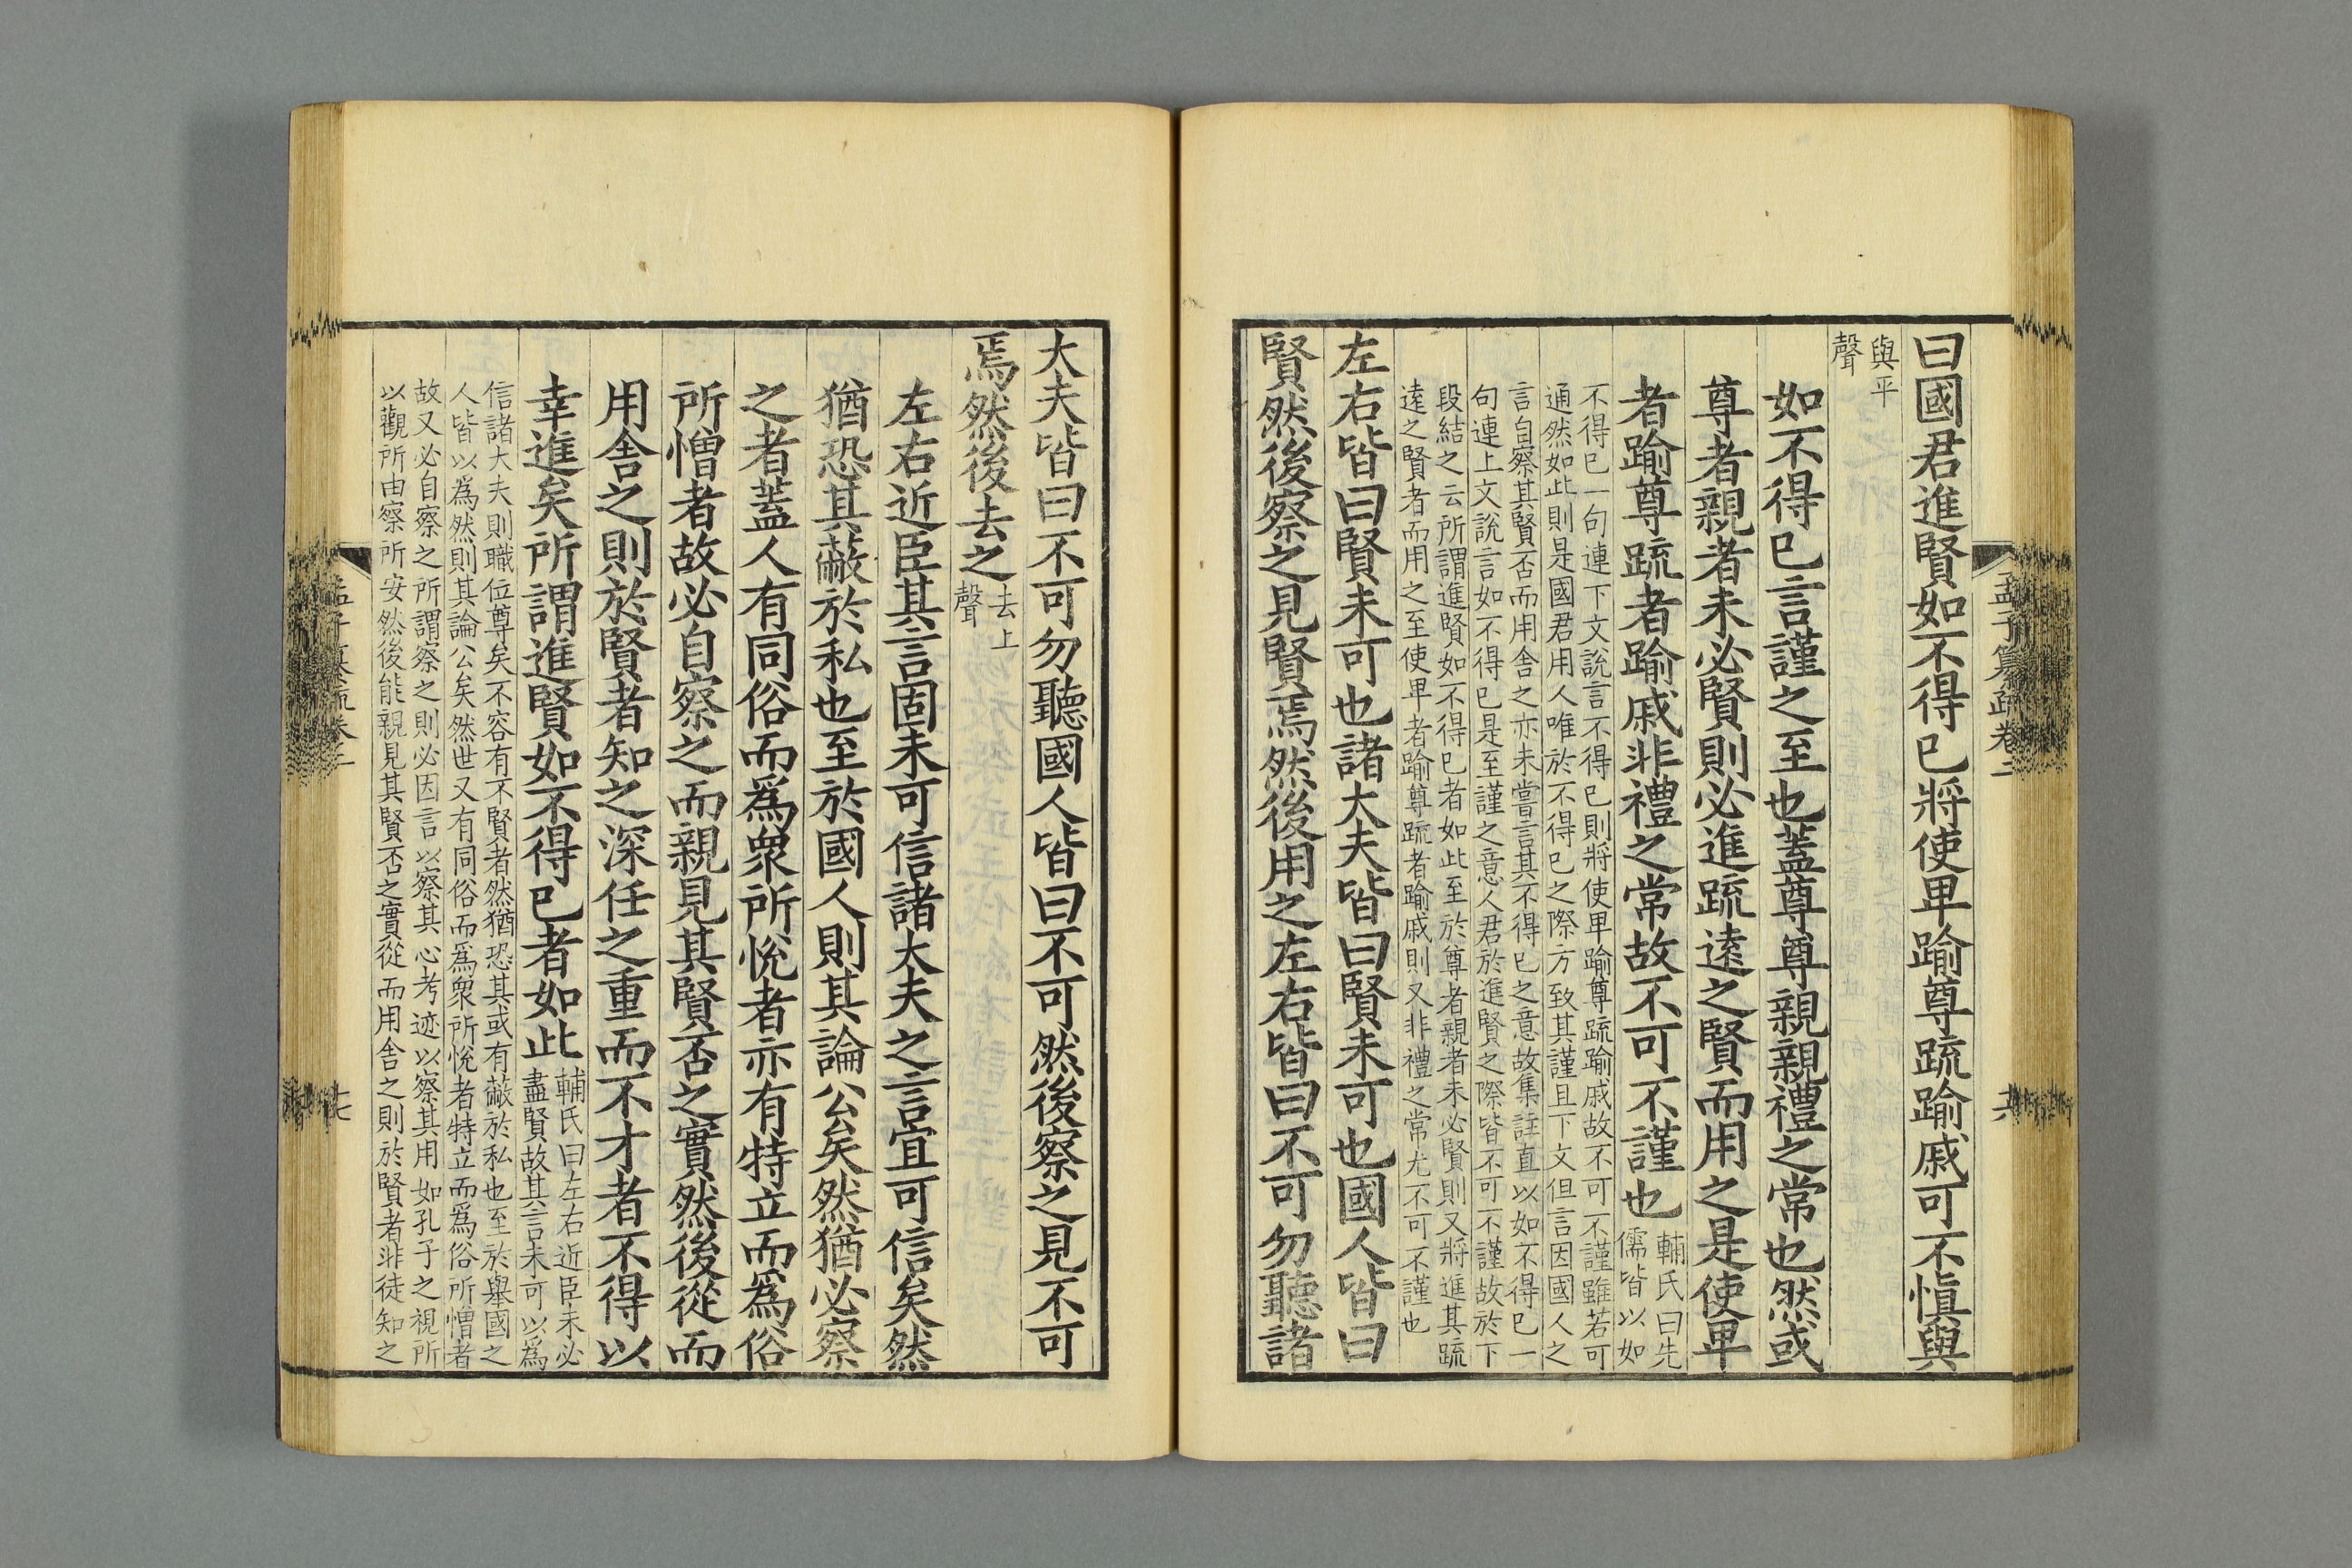 孟子纂疏卷二
曰國君進賢如不得已將使卑踰尊疏踰戚可不愼與
與平
聲
如不得已言謹之至也蓋尊尊親親禮之常也然或
尊者親者未必賢則必進疏遠之賢而用之是使卑
者踰尊疏者踰戚非禮之常故不可不謹也
輔氏曰先
儒皆以如
不得已一句連下文說言不得已則將使卑踰尊疏踰戚故不可不謹雖若可
通然如此則是國君用人唯於不得已之際方致其謹且下文但言因國人之
言自察其賢否而用舍之亦未嘗言其不得已之意故集註直以如不得已一
句連上文說言如不得已是至謹之意人君於進賢之際皆不可不謹故於下
段結之云所謂進賢如不得已者如此至於尊者親者未必賢則又將進其疏
遠之賢者而用之至使卑者踰尊疏者踰戚則又非禮之常尤不可不謹也
左右皆曰賢未可也諸大夫皆曰賢未可也國人皆曰
賢然後察之見賢焉然後用之左右皆曰不可勿聽諸
大夫皆曰不可勿聽國人皆曰不可然後察之見不可
焉然後去之
去上
聲
左右近臣其言固未可信諸大夫之言宜可信矣然
猶恐其蔽於私也至於國人則其論公矣然猶必察
之者蓋人有同俗而爲衆所悅者亦有特立而爲俗
所憎者故必自察之而親見其賢否之實然後從而
用舍之則於賢者知之深任之重而不才者不得以
幸進矣所謂進賢如不得已者如此
輔氏曰左右近臣未必
盡賢故其言未可以爲
信諸大夫則職位尊矣不容有不賢者然猶恐其或有蔽於私也至於舉國之
人皆以爲然則其論公矣然世又有同俗而爲衆所悅者特立而爲俗所憎者
故又必自察之所謂察之則必因言以察其心考迹以察其用如孔子之視所
以觀所由察所安然後能親見其賢否之實從而用舍之則於賢者非徒知之